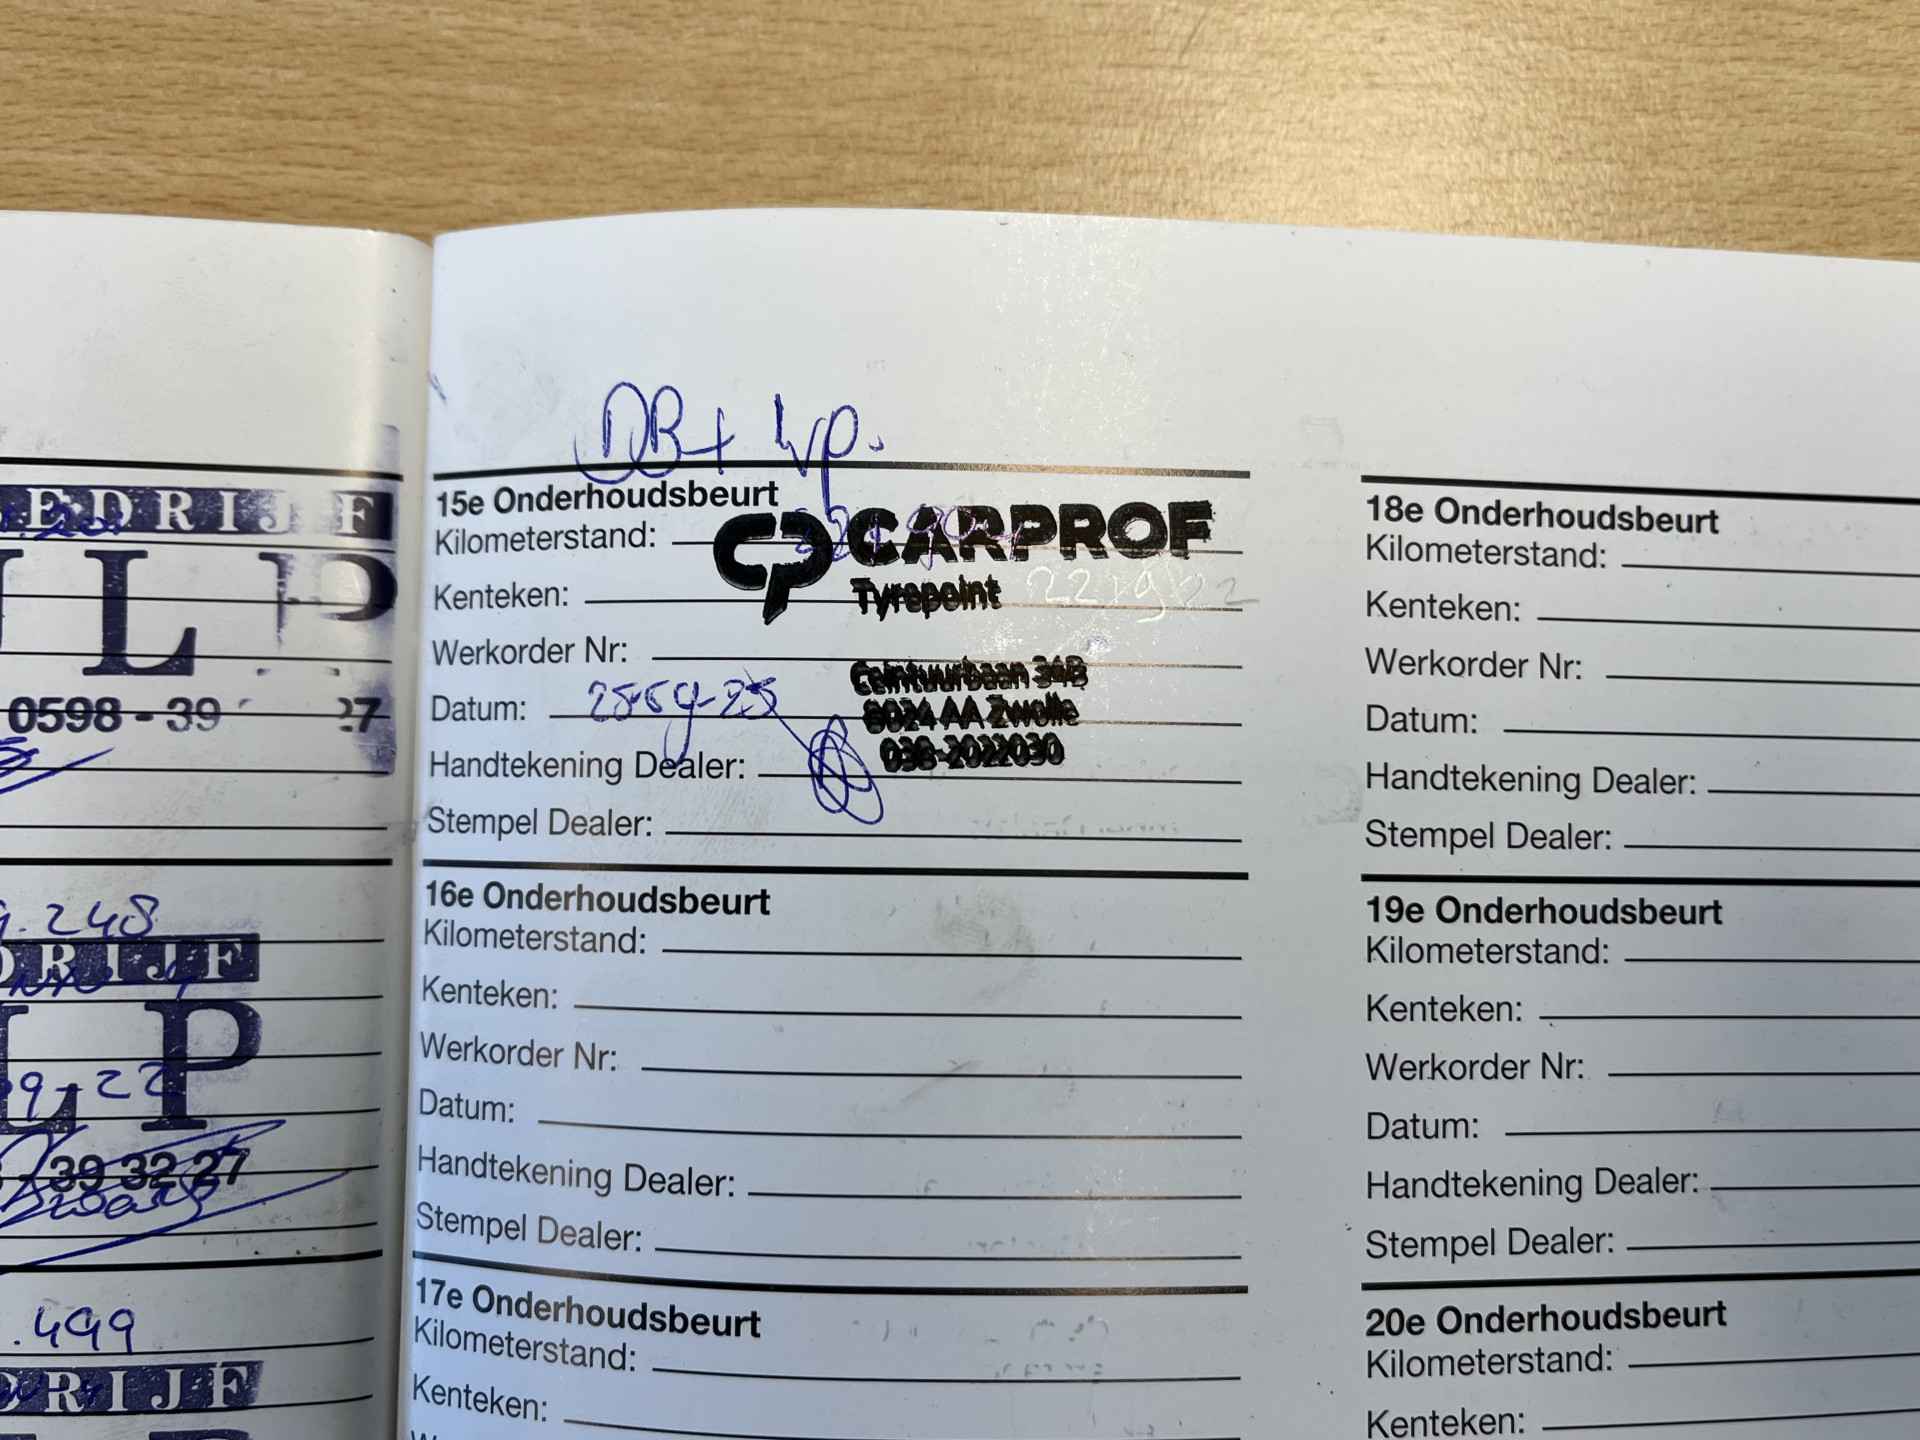 EDRIJF
ULP
0598 - 39 27
248
DRIJF
LP
09-22
39 32 27
.499
DRIJF
DB+ wp.
15e Onderhoudsbeurt
Kilometerstand:
CARPROF
Tyrepoint
Kenteken:
Werkorder Nr:
Ceintuurbaan 34B
8024 AA Zwolle
038-2022030
Datum:
Handtekening Dealer:
Stempel Dealer:
16e Onderhoudsbeurt
Kilometerstand:
Kenteken:
Werkorder Nr:
Datum:
Handtekening Dealer:
Stempel Dealer:
17e Onderhoudsbeurt
Kilometerstand:
Kenteken:
18e Onderhoudsbeurt
Kilometerstand:
Kenteken:
Werkorder Nr:
Datum:
Handtekening Dealer:
Stempel Dealer:
19e Onderhoudsbeurt
Kilometerstand:
Kenteken:
Werkorder Nr:
Datum:
Handtekening Dealer:
Stempel Dealer:
20e Onderhoudsbeurt
Kilometerstand:
Kenteken: